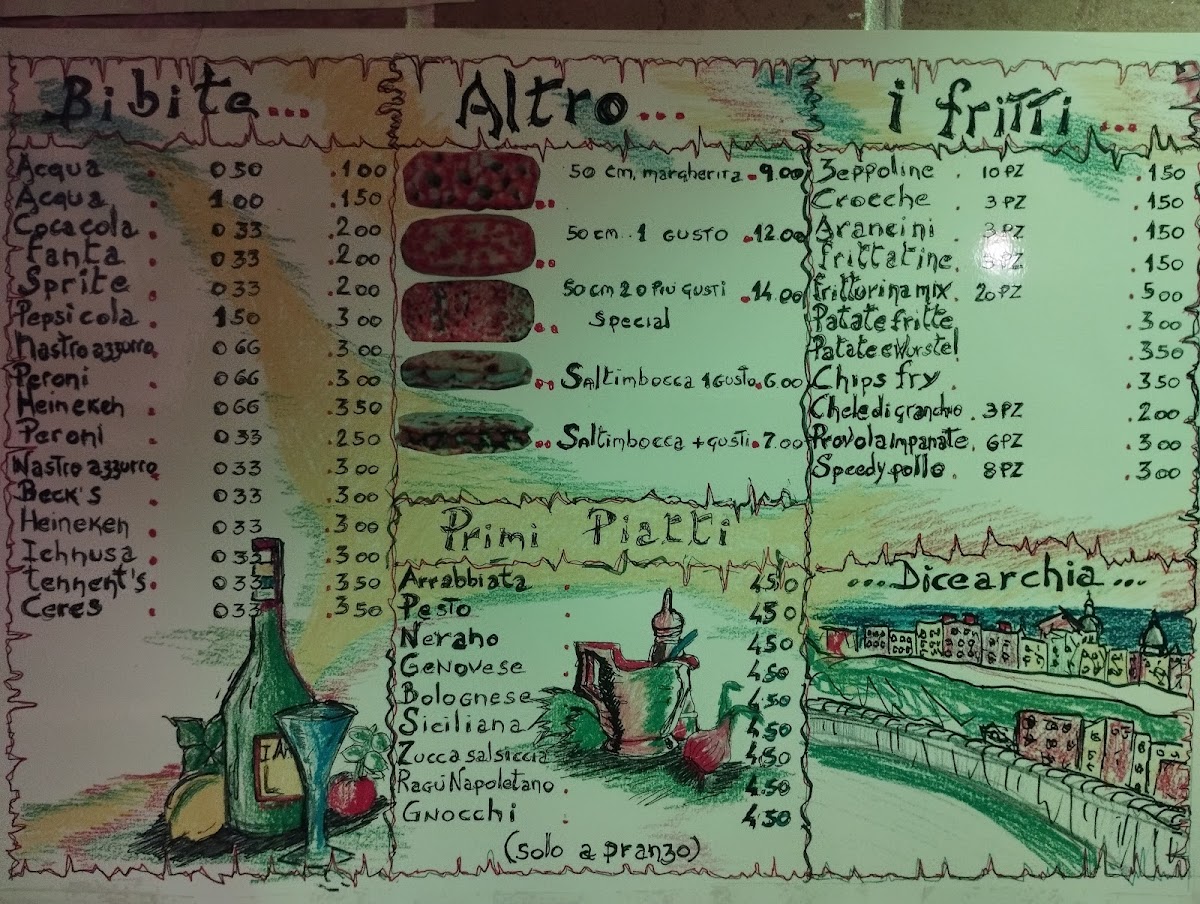 Bibite...
Acqua . 0 50 .1 00
Acqua . 1 00 .1 50
Cocacola . 0 33 .2 00
Fanta . 0 33 .2 00
Sprite . 0 33 .2 00
Pepsi cola . 1 50 .3 00
Nastro azzurro . 0 66 .3 00
Peroni . 0 66 .3 00
Heineken . 0 66 .3 50
Peroni . 0 33 .2 50
Nastro azzurro . 0 33 .3 00
Beck's . 0 33 .3 00
Heineken . 0 33 .3 00
Ichnusa . 0 33 .3 00
Tennent's . 0 33 .3 50
Ceres . 0 33 .3 50
Altro...
50 cm. margherita . 9.00
50 cm . 1 GUSTO .12.00
50 cm 2 o PIÙ GUSTI .14.00
Special
Saltimbocca 1 Gusto . 6.00
Saltimbocca + gusti . 7.00
Primi Piatti
Arrabbiata . 4.50
Pesto . 4.50
Nerano . 4.50
Genovese . 4.50
Bolognese . 4.50
Siciliana . 4.50
Zucca salsiccia 4.50
Ragù Napoletano . 4.50
Gnocchi . 4.50
(solo a pranzo)
i fritti...
Zeppoline . 10 PZ .1 50
Crocche . 3 PZ .1 50
Arancini . 3 PZ .1 50
frittatine . PZ .1 50
fritturina mix . 20 PZ .5 00
Patate fritte .3 00
Patate e Wurstel .3 50
Chips fry . .3 50
Chele di granchio . 3 PZ .2 00
Provola impanate . 6 PZ .3 00
Speedy pollo . 8 PZ .3 00
...Dicearchia...